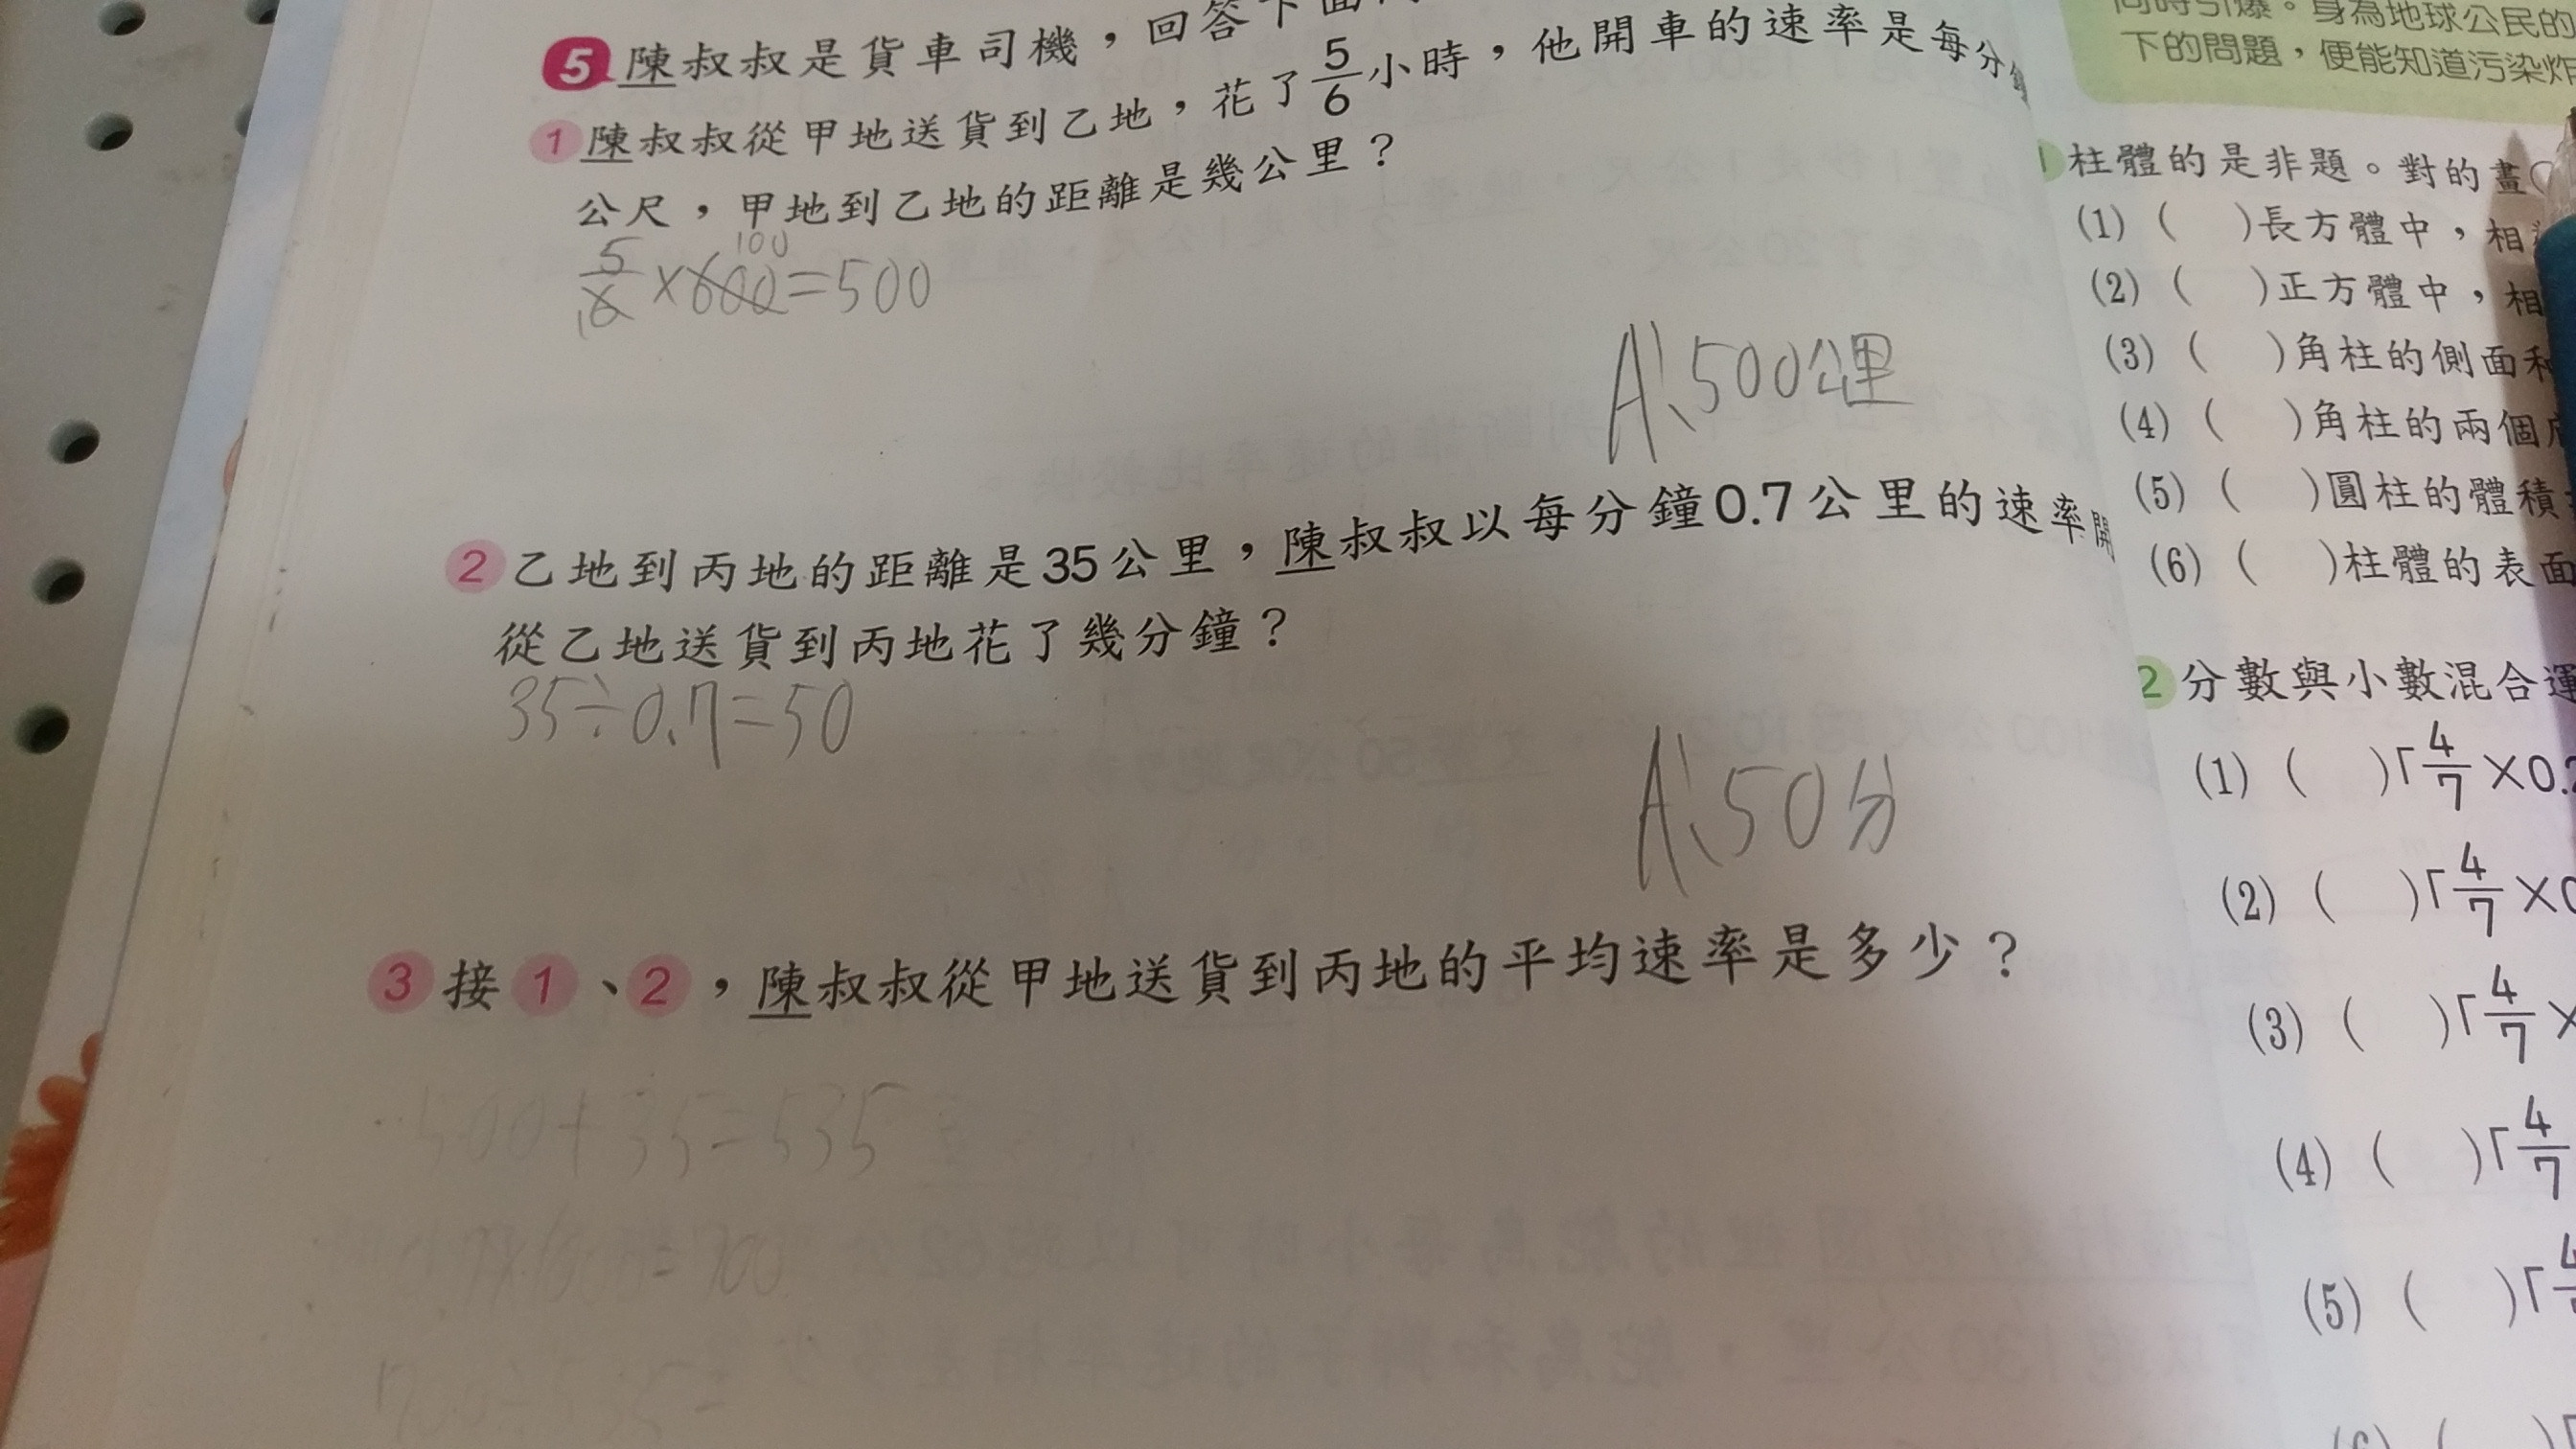 5 陳叔叔是貨車司機，回答下面
1 陳叔叔從甲地送貨到乙地，花了5/6小時，他開車的速率是每分
公尺，甲地到乙地的距離是幾公里？
100
5/6×600=500
1
A、500公里
2 乙地到丙地的距離是35公里，陳叔叔以每分鐘0.7公里的速率開
從乙地送貨到丙地花了幾分鐘？
35÷0.7=50
A、50分
3 接1、2，陳叔叔從甲地送貨到丙地的平均速率是多少？
500+35=535
同時引爆。身為地球公民的
下的問題，便能知道污染炸
1 柱體的是非題。對的畫○
(1) ( )長方體中，相
(2) ( )正方體中，相
(3) ( )角柱的側面和
(4) ( )角柱的兩個
(5) ( )圓柱的體積
(6) ( )柱體的表面
2 分數與小數混合運
(1) ( )「4/7×0.2
(2) ( )「4/7×0
(3) ( )「4/7×
(4) ( )「4/7
(5) ( )「4